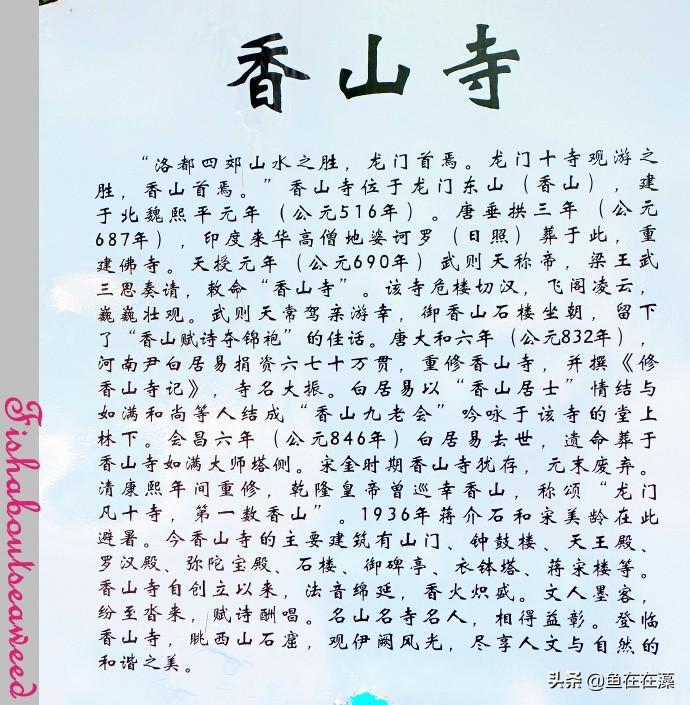 香山寺
“洛都四郊山水之胜，龙门首焉。龙门十寺观游之
胜，香山首焉。”香山寺位于龙门东山（香山），建
于北魏熙平元年（公元516年）。唐垂拱三年（公元
687年），印度来华高僧地婆诃罗（日照）葬于此，重
建佛寺。天授元年（公元690年）武则天称帝，梁王武
三思奏请，敕命“香山寺”。该寺危楼切汉，飞阁凌云，
巍巍壮观。武则天常驾亲游幸，御香山石楼坐朝，留下
了“香山赋诗夺锦袍”的佳话。唐大和六年（公元832年），
河南尹白居易捐资六七十万贯，重修香山寺，并撰《修
香山寺记》，寺名大振。白居易以“香山居士”情结与
如满和尚等人结成“香山九老会”吟咏于该寺的堂上
林下。会昌六年（公元846年）白居易去世，遗命葬于
香山寺如满大师塔侧。宋金时期香山寺犹存，元末废弃。
清康熙年间重修，乾隆皇帝曾巡幸香山，称颂“龙门
凡十寺，第一数香山”。1936年蒋介石和宋美龄在此
避暑。今香山寺的主要建筑有山门、钟鼓楼、天王殿、
罗汉殿、弥陀宝殿、石楼、御碑亭、衣钵塔、蒋宋楼等。
香山寺自创立以来，法音绵延，香火炽盛。文人墨客，
纷至沓来，赋诗酬唱。名山名寺名人，相得益彰。登临
香山寺，眺西山石窟，观伊阙风光，尽享人文与自然的
和谐之美。
Fishaboutseaweed
头条 @鱼在在藻